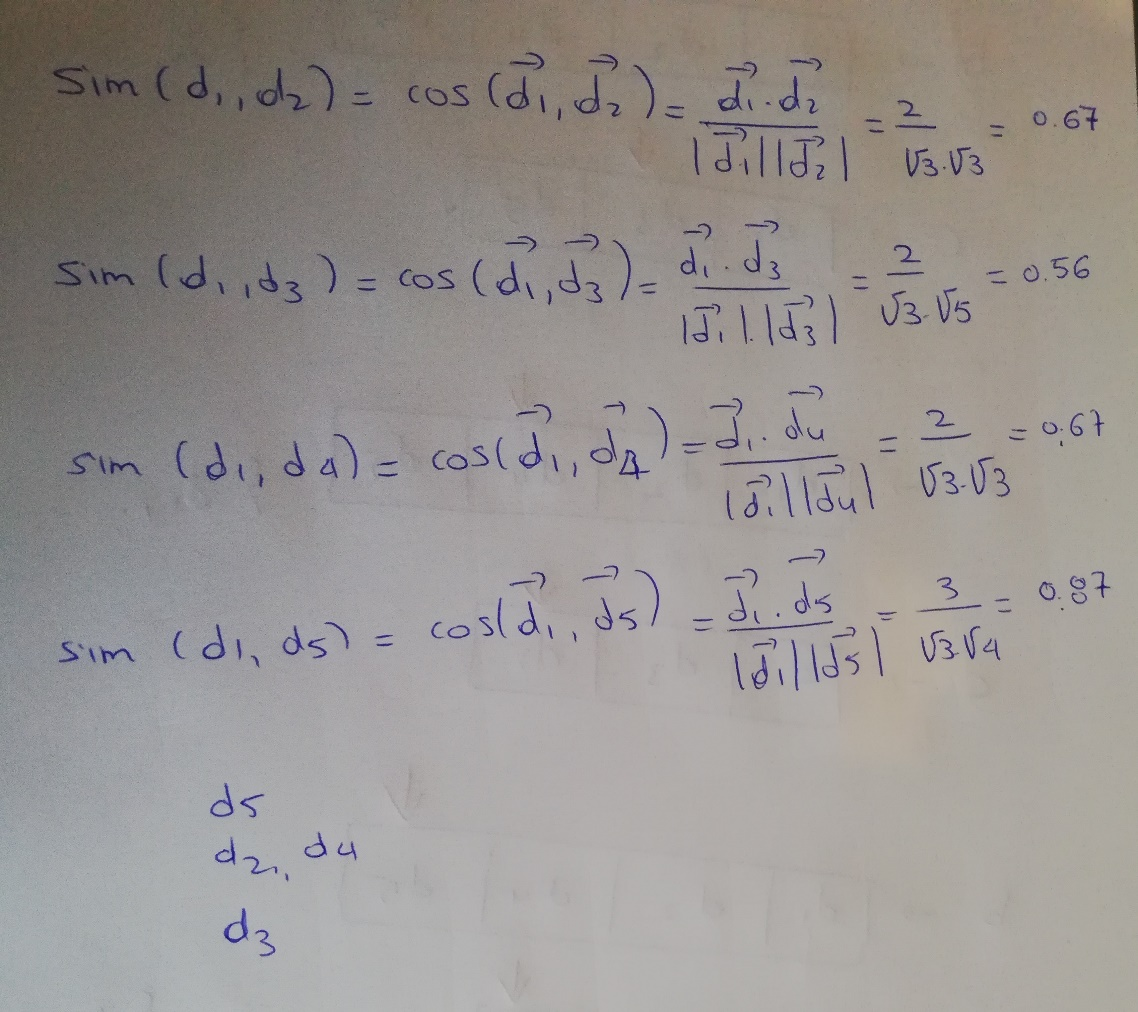 Sim(d₁,d₂) = cos(d⃗₁,d⃗₂) = d⃗₁.d⃗₂ / |d⃗₁||d⃗₂| = 2 / √3.√3 = 0.67
Sim(d₁,d₃) = cos(d⃗₁,d⃗₃) = d⃗₁.d⃗₃ / |d⃗₁|.|d⃗₃| = 2 / √3.√5 = 0.56
sim(d₁,d4) = cos(d⃗₁,d⃗4) = d⃗₁.d⃗4 / |d⃗₁||d⃗4| = 2 / √3.√3 = 0.67
sim(d1,d5) = cos(d⃗₁,d⃗5) = d⃗₁.d⃗5 / |d⃗₁||d⃗5| = 3 / √3.√4 = 0.87
d5
d2, d4
d3